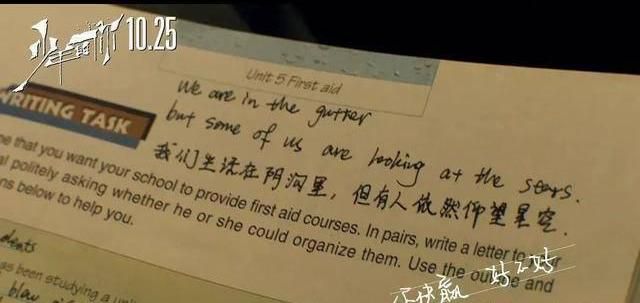 少年的你 10.25
Unit 5 First aid
We are in the gutter
but some of us are looking at the stars.
我们生活在阴沟里，但有人依然仰望星空.
WRITING TASK
e that you want your school to provide first aid courses. In pairs, write a letter to
al politely asking whether he or she could organize them. Use the outline and
ns below to help you.
dents
as been studying a uni
blow